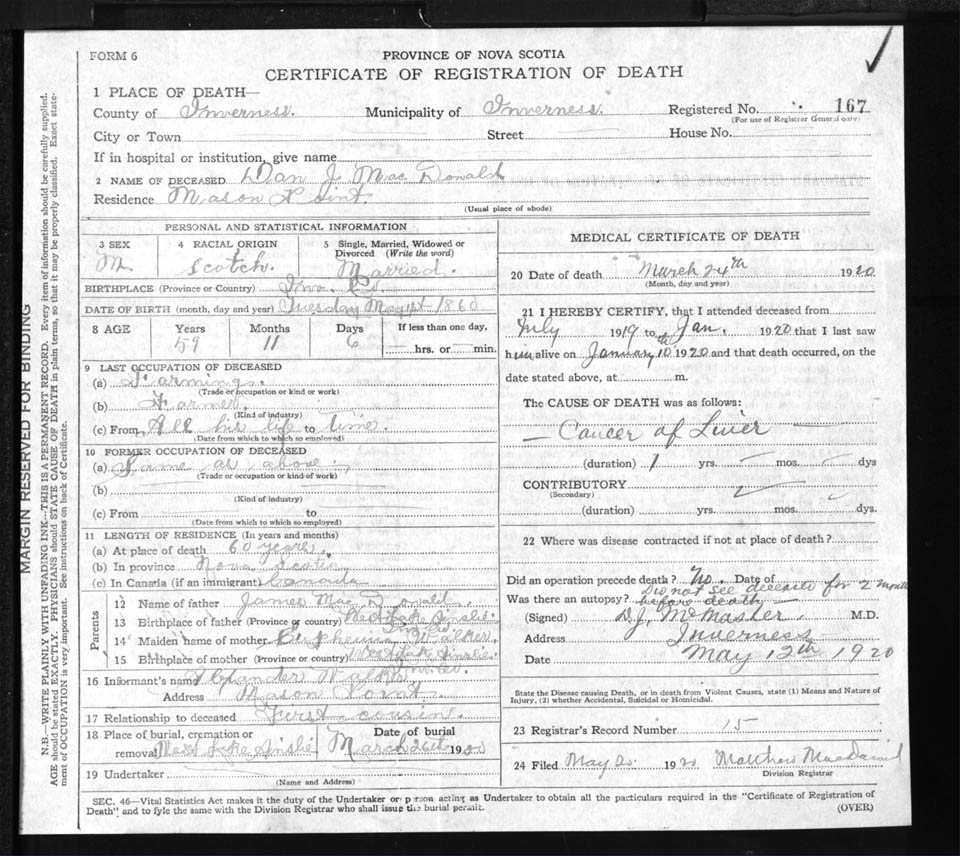 FORM 6
PROVINCE OF NOVA SCOTIA
CERTIFICATE OF REGISTRATION OF DEATH
1 PLACE OF DEATH—
County of Inverness. Municipality of Inverness. Registered No. 167
(For use of Registrar General only)
City or Town Street House No.
If in hospital or institution, give name
2 NAME OF DECEASED Dan J. Mac Donald
Residence Mason Point
(Usual place of abode)
PERSONAL AND STATISTICAL INFORMATION
3 SEX 4 RACIAL ORIGIN 5 Single, Married, Widowed or Divorced (Write the word)
M. Scotch. Married.
BIRTHPLACE (Province or Country) Inv. Co.
DATE OF BIRTH (month, day and year) Tuesday May 1st 1860
8 AGE Years Months Days If less than one day,
59 11 6 — hrs. or — min.
9 LAST OCCUPATION OF DECEASED
(a) Farmings.
(Trade or occupation or kind or work)
(b) Farmer.
(Kind of industry)
(c) From All his life to time.
(Date from which to which so employed)
10 FORMER OCCUPATION OF DECEASED
(a) Same as above.
(Trade or occupation or kind of work)
(b)
(Kind of industry)
(c) From to
(Date from which to which so employed)
11 LENGTH OF RESIDENCE (In years and months)
(a) At place of death 60 years.
(b) In province Nova Scotia
(c) In Canada (if an immigrant) Canada
Parents
12 Name of father James Mac Donald.
13 Birthplace of father (Province or country) West Lake Ainslie
14 Maiden name of mother Euphemia Walker
15 Birthplace of mother (Province or country) West Lake Ainslie
16 Informant's name Walker
Address Mason Point.
17 Relationship to deceased First cousin.
18 Place of burial, cremation or removal Date of burial
West Lake Ainslie March 26th 1920
19 Undertaker
(Name and Address)
MEDICAL CERTIFICATE OF DEATH
20 Date of death March 24th 1920
(Month, day and year)
21 I HEREBY CERTIFY, that I attended deceased from
July 1919 to Jan. 1920 that I last saw
him alive on January 10th 1920 and that death occurred, on the
date stated above, at m.
The CAUSE OF DEATH was as follows:
— Cancer of Liver
(duration) 1 yrs. — mos. — dys
CONTRIBUTORY
(Secondary)
(duration) yrs. mos. dys.
22 Where was disease contracted if not at place of death?
Did an operation precede death? No. Date of
Did not see deceased for 2 months
Was there an autopsy? before death
(Signed) D.J. McMaster. M.D.
Address Inverness
Date May 12th 1920
State the Disease causing Death, or in death from Violent Causes, state (1) Means and Nature of
Injury, (2) whether Accidental, Suicidal or Homicidal.
23 Registrar's Record Number 15
24 Filed May 20 1920 Matthew MacDaniel
Division Registrar
SEC. 46—Vital Statistics Act makes it the duty of the Undertaker or person acting as Undertaker to obtain all the particulars required in the "Certificate of Registration of
Death" and to fyle the same with the Division Registrar who shall issue the burial permit. (OVER)
MARGIN RESERVED FOR BINDING
N.B.—WRITE PLAINLY WITH UNFADING INK—THIS IS A PERMANENT RECORD. Every item of information should be carefully supplied.
AGE should be stated EXACTLY. PHYSICIANS should STATE CAUSE OF DEATH in plain terms, so that it may be properly classified. Exact state-
ment of OCCUPATION is very important. See instructions on back of Certificate.